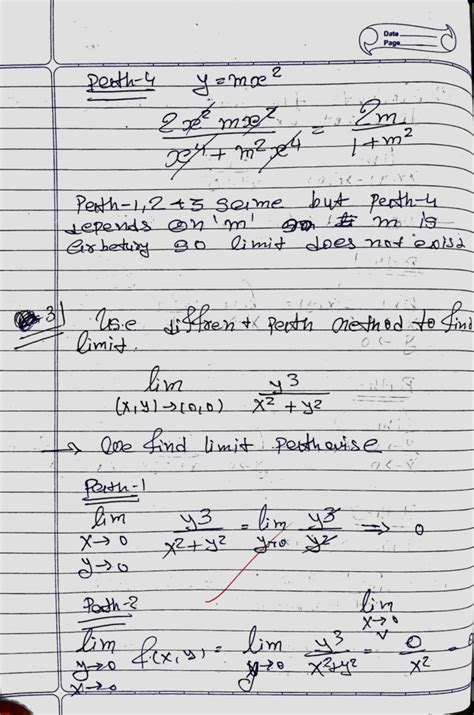 Date
Page
Path-4 y = mx²
2x² mx² / x⁴ + m²x⁴ = 2m / 1 + m²
Path-1, 2 + 3 same but Path-4
depends on 'm' so m is
arbetury so limit does not exisd
3] Use diffrent Path method to find
limit.
lim (x,y)→(0,0) y3 / x² + y²
→ We find limit Pathwise
Path-1
lim x→0 y→0 y3 / x²+y² = lim y→0 y3 / y² ⇒ 0
Path-2
lim y→0 x→0 f(x,y) = lim y→0 y3 / x²+y² = lim x→0 0 / x² =